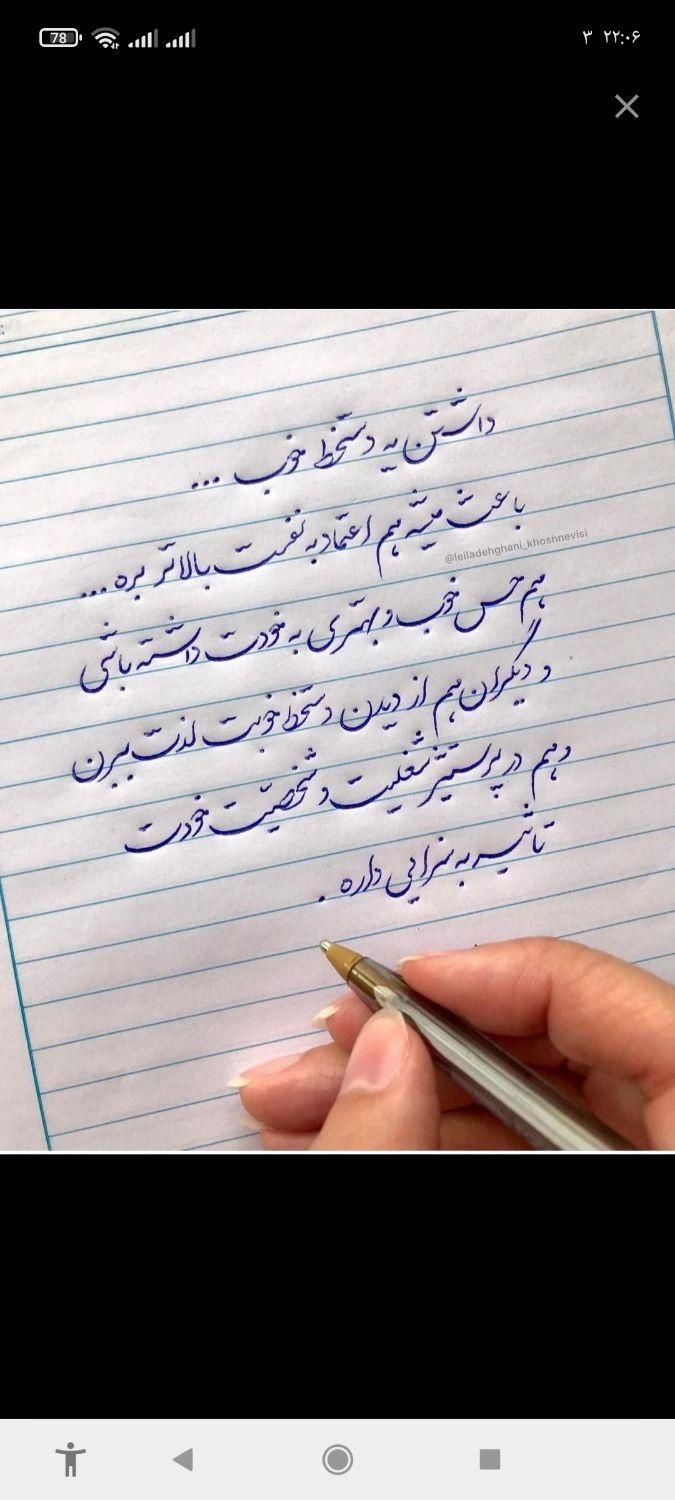 78
۳ ۲۲:۰۶
داشتن یه دستخط خوب ...
باعث میشه هم اعتماد به نفست بالاتر بره ...
@leiladehghani_khoshnevisi
هم حس خوب و بهتری به خودت داشته باشی
و دیگران هم از دیدن دستخط خوبت لذت ببرن
و هم در پرستیژ شغلیت و شخصیّت خودت
تاثیر به سزایی داره .